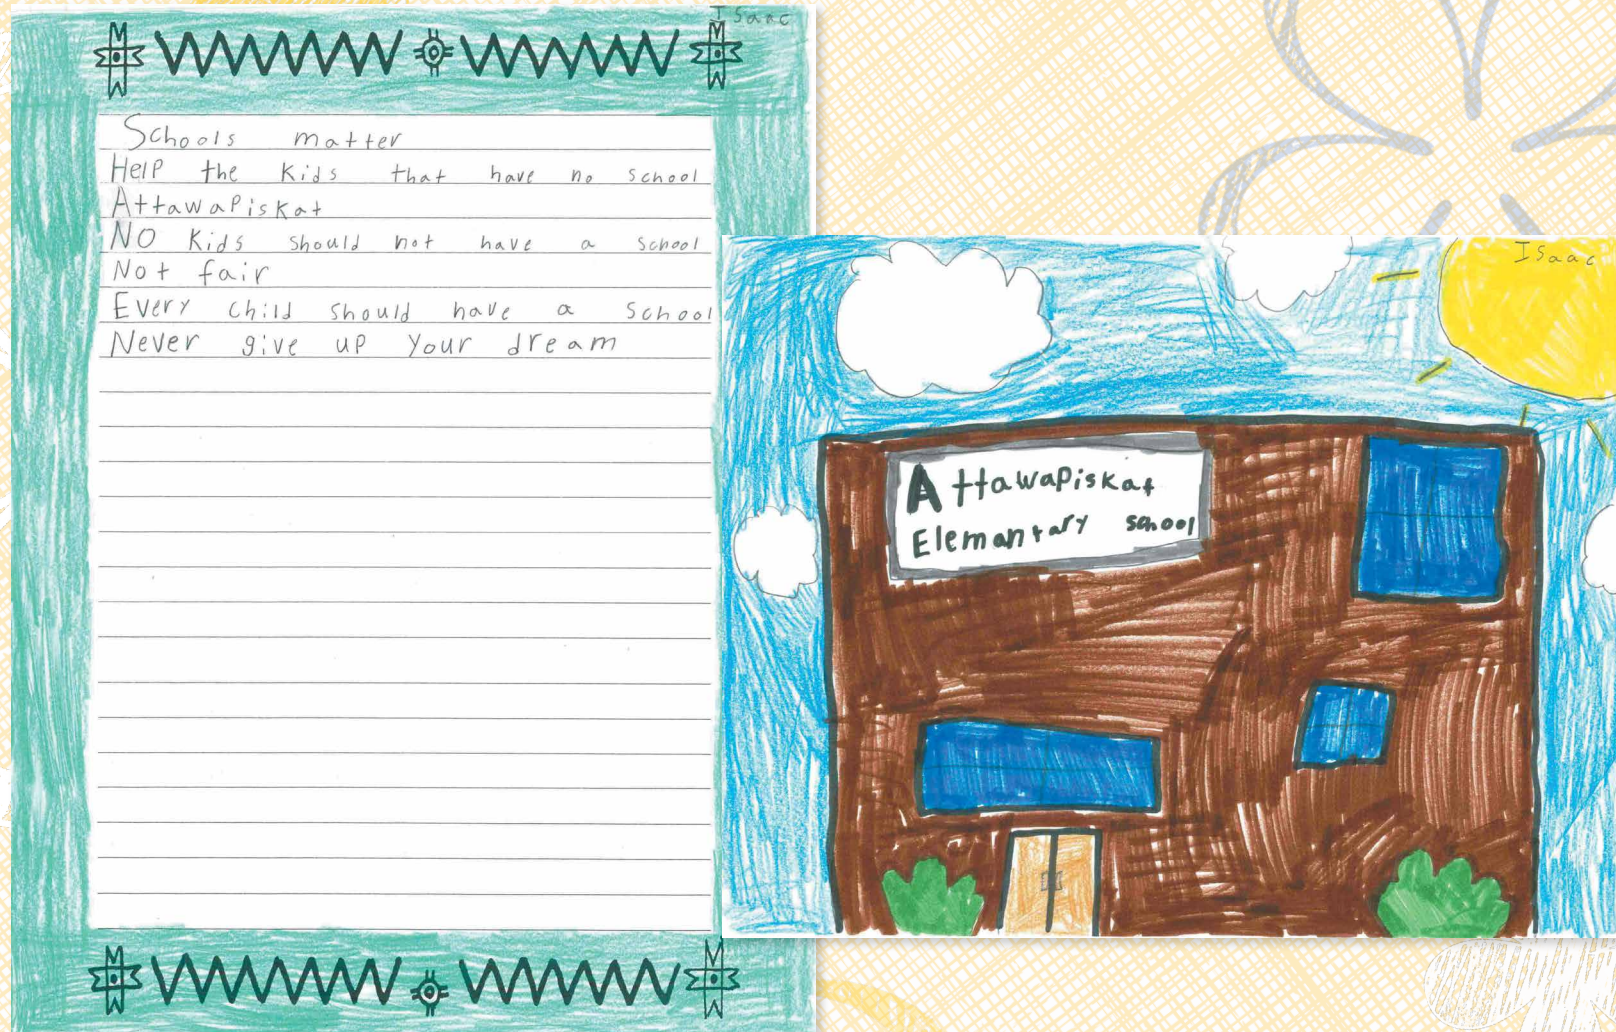 Isaac
Schools matter
Help the kids that have no school
Attawapiskat
No kids should not have a school
Not fair
Every child should have a school
Never give up your dream
Isaac
Attawapiskat
Elemantary school